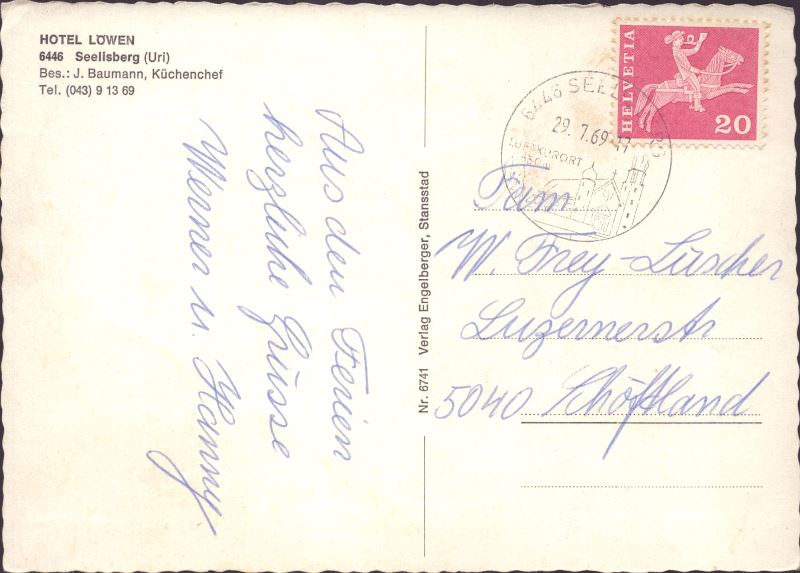 HOTEL LÖWEN
6446 Seelisberg (Uri)
Bes.: J. Baumann, Küchenchef
Tel. (043) 9 13 69
Aus den Ferien
herzliche Grüsse
Werner u. Hanny.
Nr. 6741 Verlag Engelberger, Stansstad
HELVETIA
20
6446 SEEL
29.7.69-17
LUFTKURORT
850 m
Fam.
W. Frey-Lüscher
Luzernerstr
5040 Schöftland